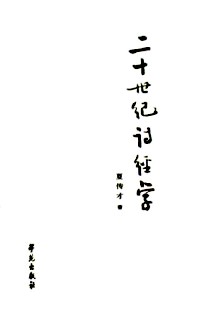 二十世纪诗经学
夏传才 著
学苑出版社